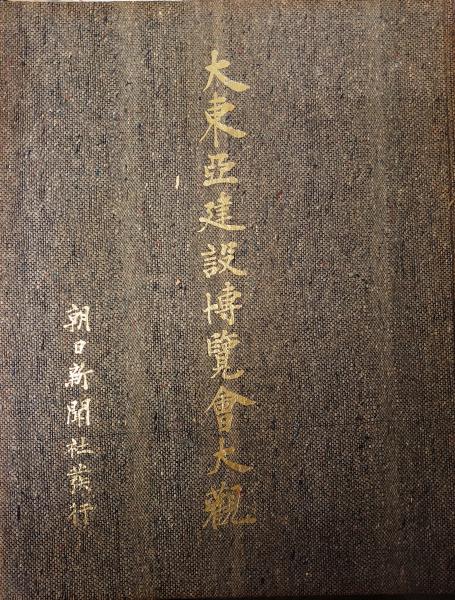 大東亞建設博覽會大觀
朝日新聞社發行